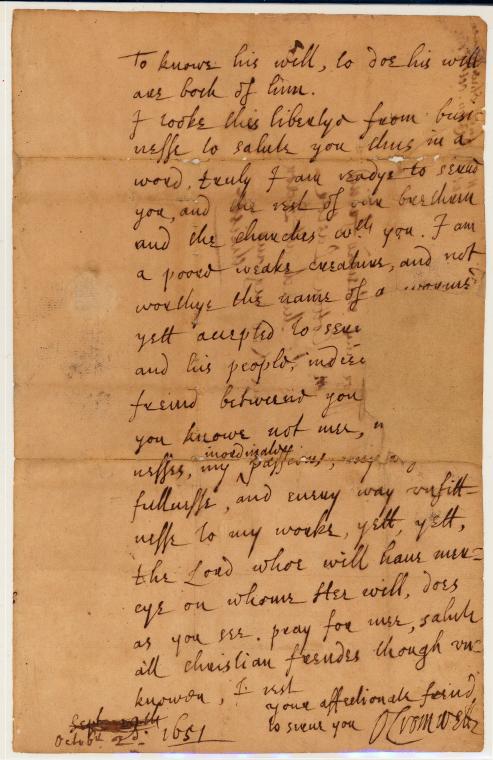 To knowe his will, to doe his will
are both of him.
I tooke this libertye from busi-
nesse to salute you thus in a
word, truly I am readye to serve
you, and the rest of our brethren
and the churches with you. I am
a poore weake creature, and not
worthye the name of a worme
yett accepted to serve
and his people, indee
freind betweene you
you knowe not mee,
nesses, my inordinate passions, my
fullnesse, and every way unfitt-
nesse to my worke, yett, yett,
the Lord whoe will have mer=
cye on whome Hee will, does
as you see. pray for mee, salute
all christian freindes though un=
knowen, I rest
your affectionate freind
to serve you O Cromwell
Octob. 2d. 1651